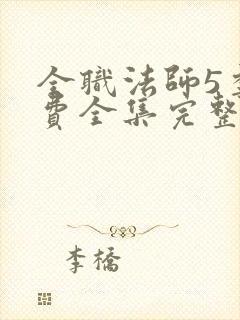 全職法師5季
費全集完整
李橋